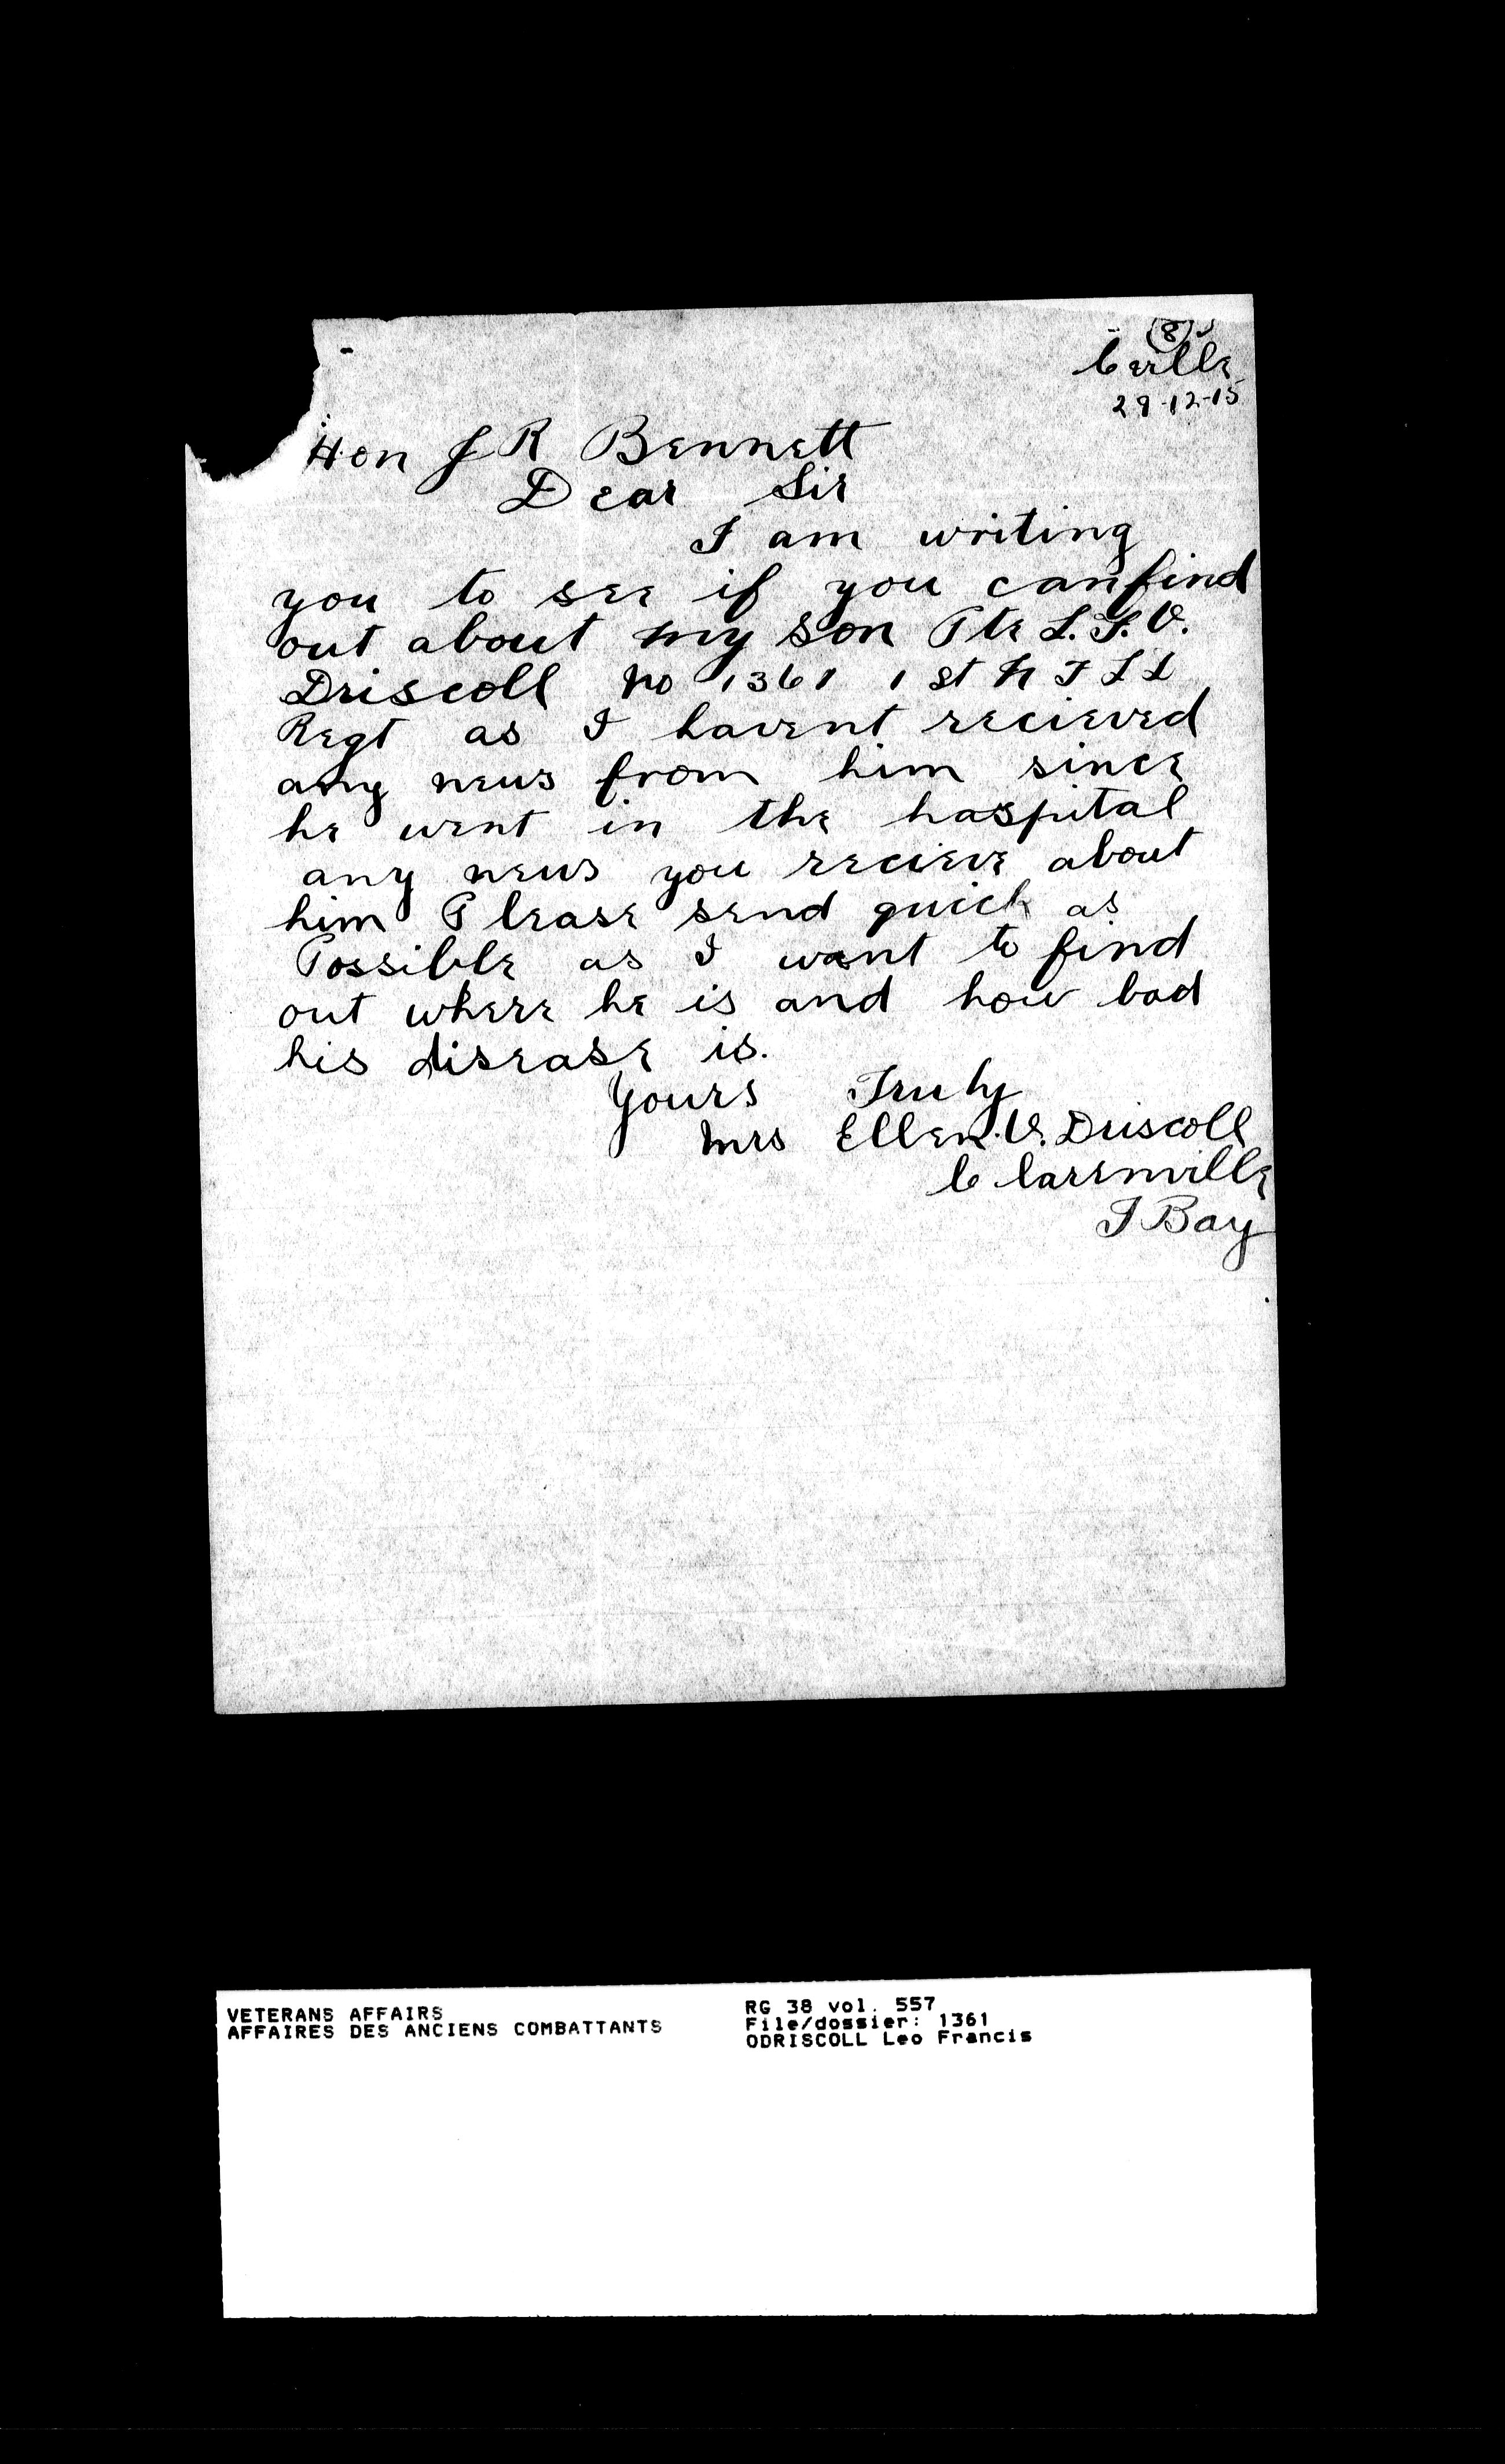 (8)
Cville
29-12-15
Hon J R Bennett
Dear Sir
I am writing
you to see if you can find
out about my son Pte L. F. O.
Driscoll No 1361 1st N F L D
Regt as I havent recieved
any news from him since
he went in the haspital
any news you recieve about
him Please send quick as
Possible as I want to find
out where he is and how bad
his disease is.
Yours Truly
Mrs Ellen. O. Driscoll
Clarenville
T Bay
VETERANS AFFAIRS
AFFAIRES DES ANCIENS COMBATTANTS
RG 38 vol. 557
File/dossier: 1361
ODRISCOLL Leo Francis